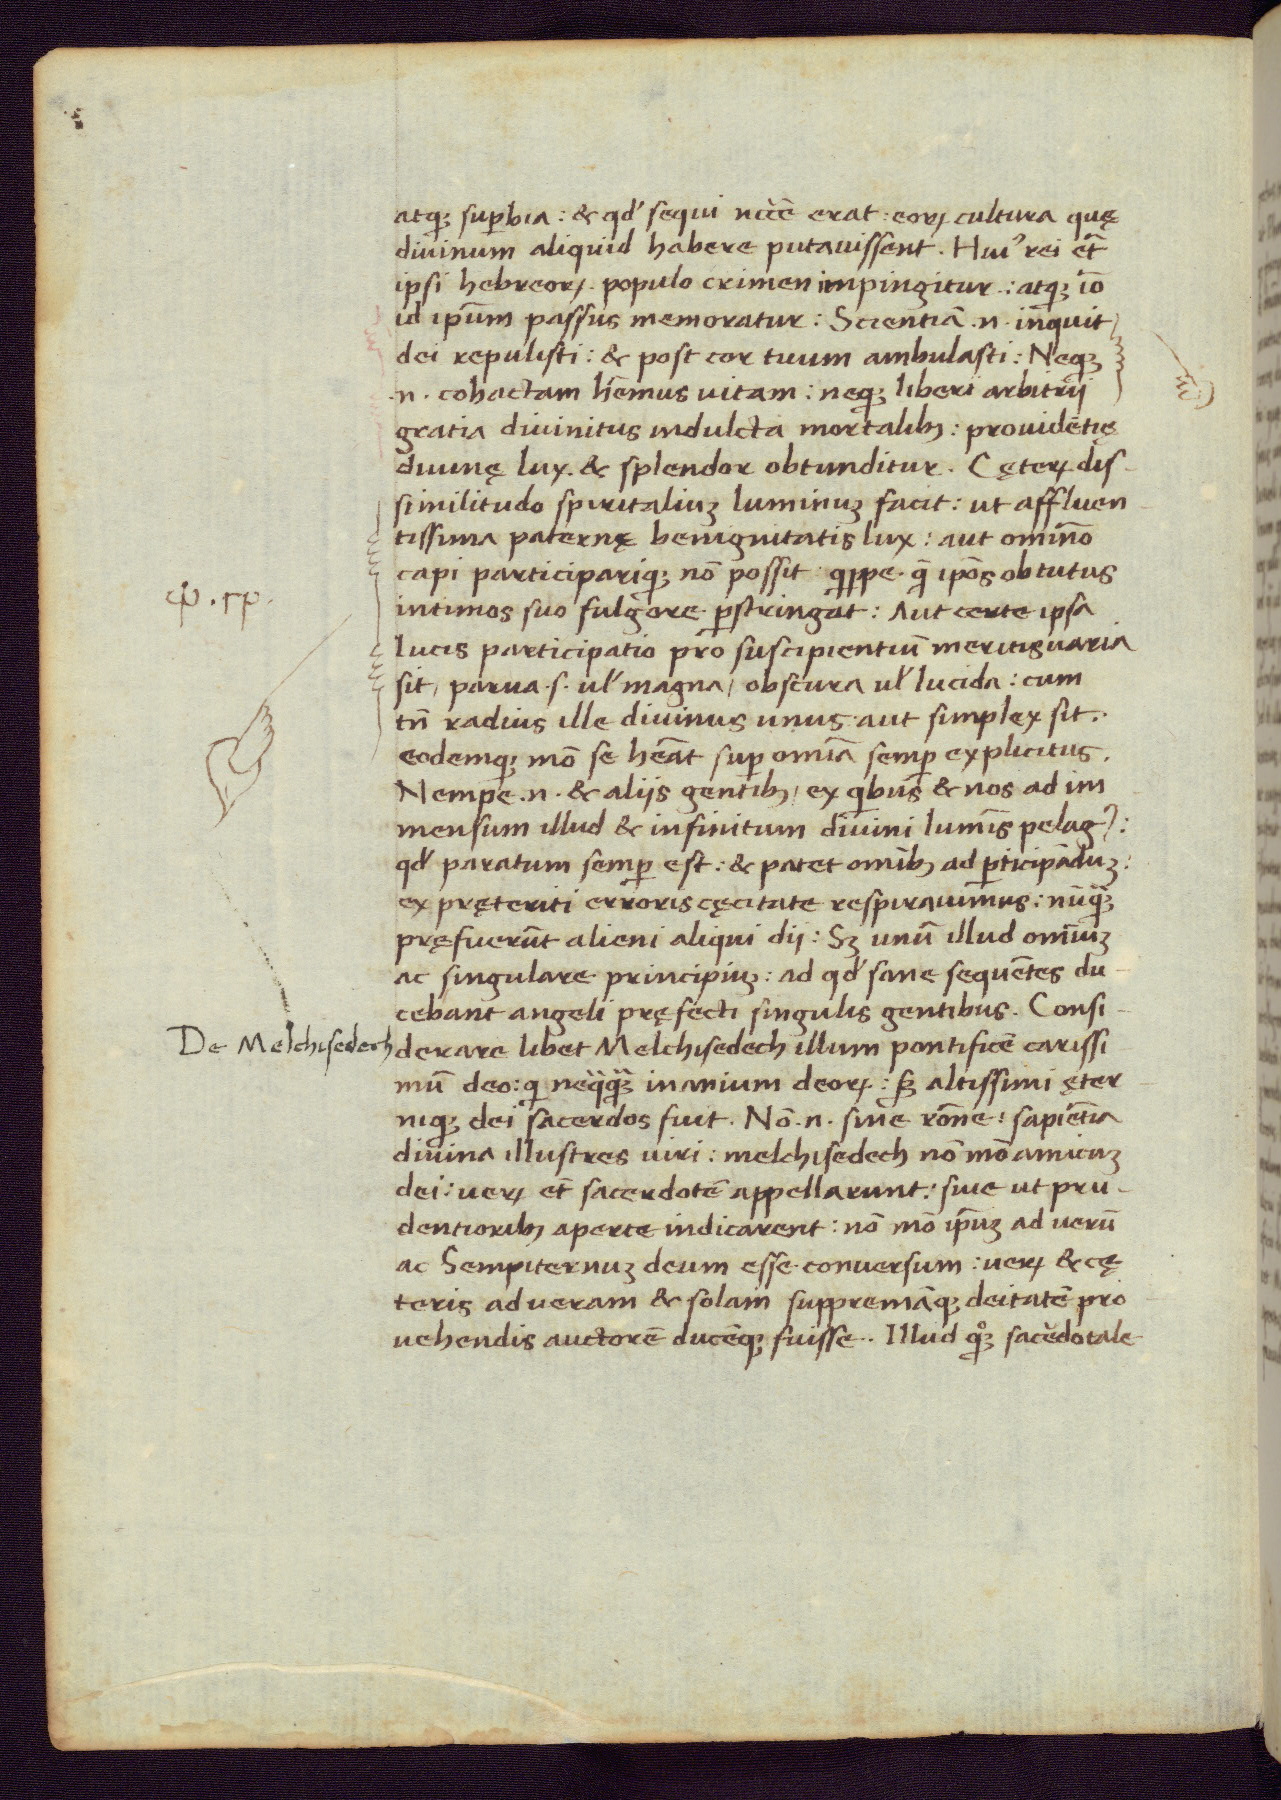 atq; sup̲bia : & qđ sequi nc̄cē erat : eoꝝ cultura quę
diuinum aliquid habere putauissent . Huiꝰ rei et̄
ipsi hebreoꝝ populo crimen impingitur : atq; iō
id ip̄um passus memoratur : Scientiā .n. inquit /
dei repulisti : & post cor tuum ambulasti : Neq;
.n. cohactam hēmus uitam : neq; liberi arbitrij
gratia diuinitus indulcta mortalib; : prouidētię
diuinę lux & splendor obtunditur . Cęteꝝ dis-
similitudo spiritaliuꝫ luminuꝫ facit : ut affluen-
tissima paternę benignitatis lux : aut omīno
capi participariq; nō possit quippe q̄ ip̄os obtutus
intimos suo fulgore p̲stringat : Aut certe ipsa
lucis participatio pro suscipientiū meritis uaria
sit / parua .s. ul' magna / obscura ul' lucida : cum
tn̄ radius ille diuinus unus aut simplex sit .
eodemq; mō se hēat sup̲ omīa semp̲ explicitus .
Nempe .n. & aliis gentib; / ex quibus & nos ad im
mensum illud & infinitum diuini lumīs pelagꝰ :
qđ paratum semp̲ est : & patet omīb; ad p̲ticipāduꝫ :
ex pręteriti erroris cęcitate respirauimus : nūq̄ꝫ
pręfuerūt alieni aliqui dij : Sꝫ unū illud omīuꝫ
ac singulare principiuꝫ : ad qđ sane sequētes du-
cebant angeli pręfecti singulis gentibus . Consi-
De Melchisedech
derare libet Melchisedech illum pontificē carissi
mū deo : qi neq̄q̄ꝫ inanium deoꝝ : sꝫ altissimi ęter
niq; dei sacerdos fuit . Nō .n. sine rōne : sapiētia
diuina illustres uiri : melchisedech nō mō amicuꝫ
dei : ueꝝ et̄ sacerdotē appellarunt : siue ut pru-
dentiorib; aperte indicarent : nō mō ip̄uꝫ ad uerū
ac Sempiternuꝫ deum esse conuersum : ueꝝ & cę
teris ad ueram & solam suppremāq; deitatē pro
uehendis auctorē ducēq; fuisse . Illud qͦꝫ sacēdotale